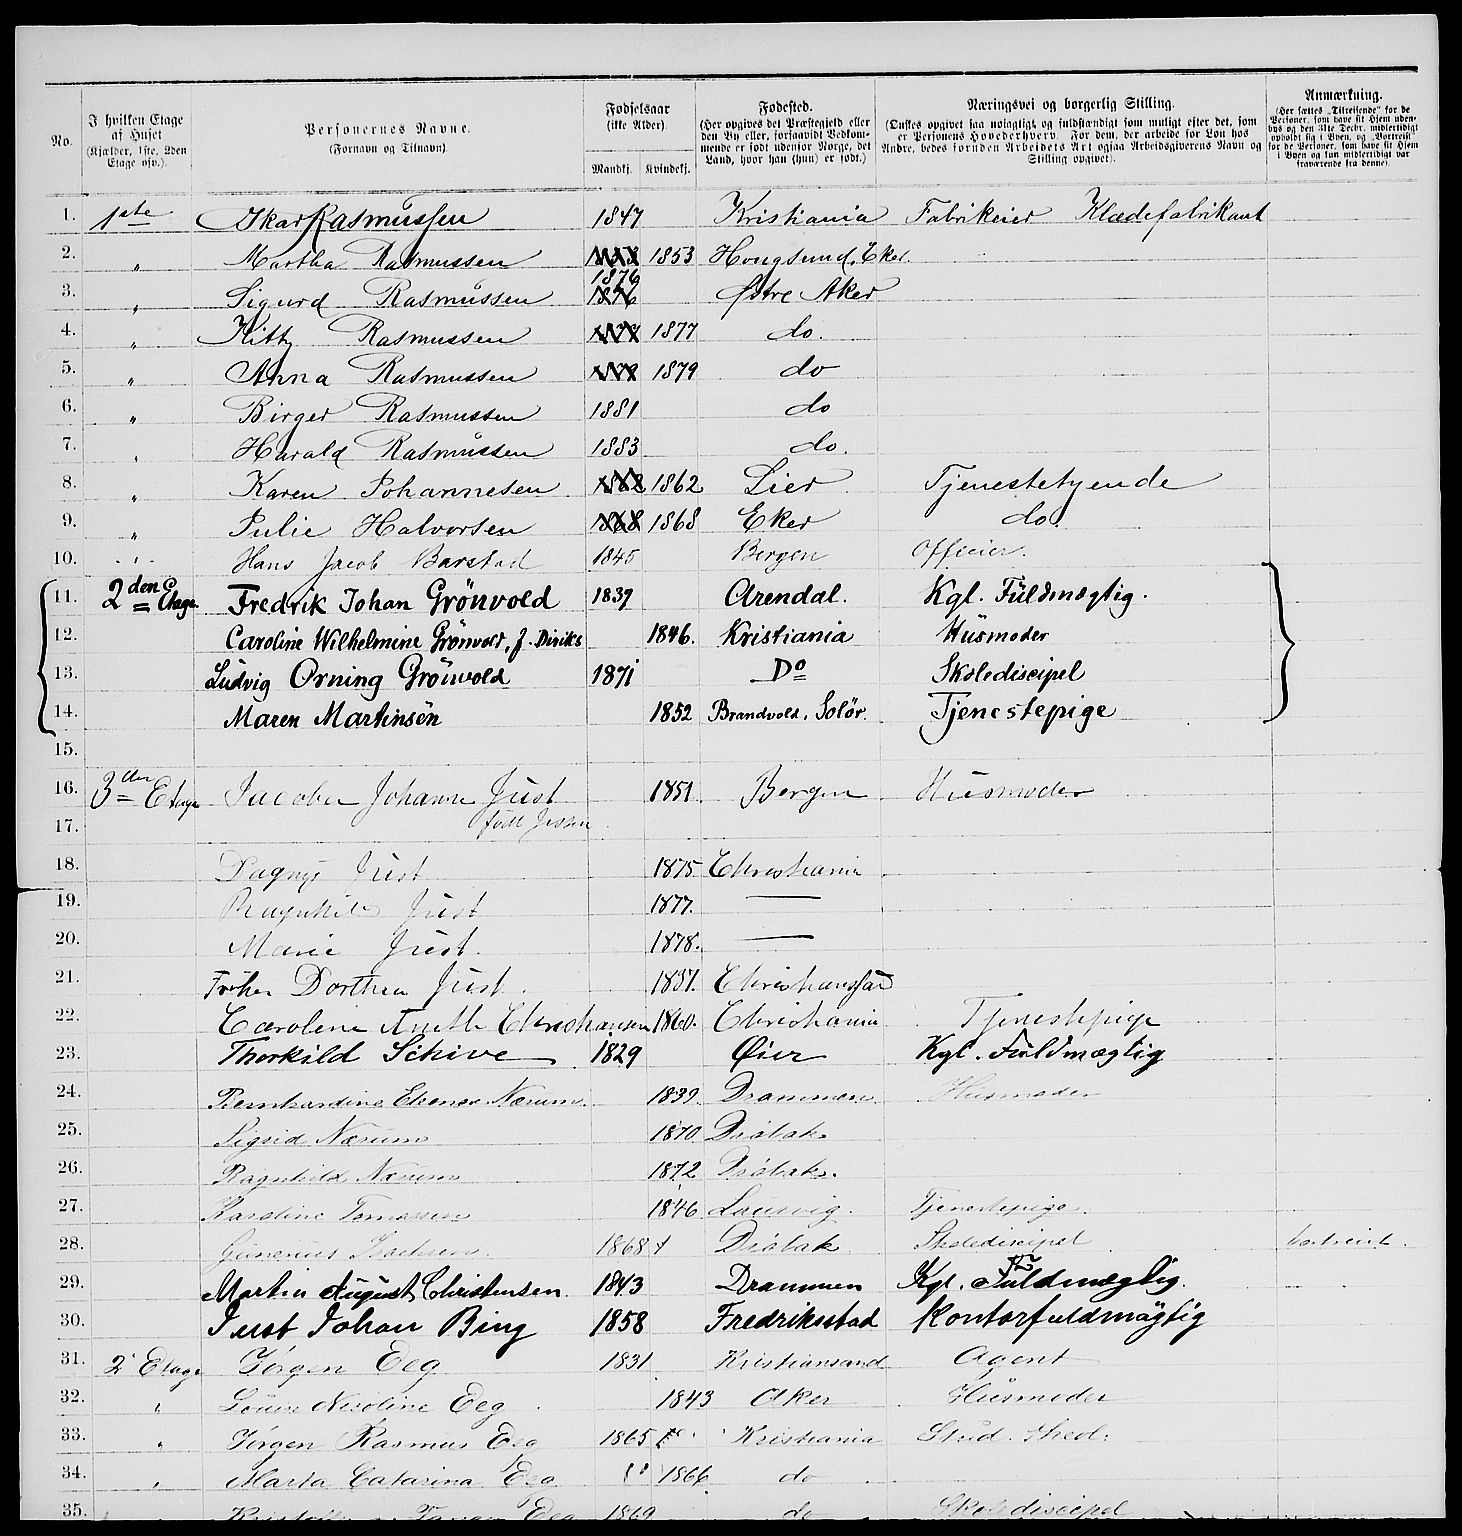 No.
I hvilken Etage af Huset (Kjælder, 1ste, 2den Etage osv.).
Personernes Navne. (Fornavn og Tilnavn)
Fødselsaar (ikke Alder). Mandkj. Kvindekj.
Fødested. (Her opgives det Præstegjeld eller den By eller, forsaavidt Vedkommende er født udenfor Norge, det Land, hvor han (hun) er født.)
Næringsvei og borgerlig Stilling. (Ønskes opgivet saa nøiagtigt og fuldstændigt som muligt efter det, som er Personens Hovederhverv. For dem, der arbeide for Løn hos Andre, bedes foruden Arbeidets Art ogsaa Arbeidsgiverens Navn og Stilling opgivet).
Anmærkning. (Her sættes „Tilreisende“ for de Personer, som have sit Hjem udenbys og den 31te Decbr. midlertidigt opholdt sig i Byen, og „Bortreist“ for de Personer, som have sit Hjem i Byen og kun midlertidigt var fraværende fra denne).
1. 1ste Rasmussen 1847 Kristiania Fabrikeier Klædefabrikant
2. „ Martha Rasmussen 1853 Hougsund, Eker
3. „ Sigurd Rasmussen 1876 Østre Aker
4. „ Kitty Rasmussen 1877 do.
5. „ Anna Rasmussen 1879 do
6. „ Birger Rasmussen 1881 do
7. „ Harald Rasmussen 1883 do.
8. „ Karen Johannesen 1862 Lier Tjenestetyende
9. „ Julie Halvorsen 1868 Eker do
10. „ Hans Jacob Barstad 1845 Bergen Officier.
11. 2den Etage Fredrik Johan Grönvold 1839 Arendal. Kgl. Fuldmægtig.
12. Caroline Wilhelmine Grönvold, f. Diriks 1846. Kristiania Husmoder
13. Ludvig Orning Grönvold 1871 Do Skolediscipel
14. Maren Martinsön 1852 Brandvold, Solör Tjenestepige
15.
16. 3die Etage Johanne Just 1851. Bergen Husmoder
17. født Jessen
18. Dagny Just 1875 Christiania
19. Ragnhild Just 1877. —
20. Marie Just. 1878. —
21. Dorthea Just. Christianssand
22. Caroline Christiansen 1860. Christiania Tjenestepige
23. Thorkild Schive 1829 Øier Kgl. Fuldmægtig
24. Bernhardine Nærum. 1839. Drammen Husmoder
25. Sigrid Nærum 1870 Dröbak
26. Ragnhild Nærum 1872 Dröbak.
27. Karoline 1846 Laurvig. Tjenestepige
28. Gunerius 1868 Dröbak Skolediscipel bortreist.
29. Martin August Christensen. 1843 Drammen Kgl. Fuldmægtig.
30. Just Johan Bing 1858 Fredriksstad Kontorfuldmägtig
31. 2 Etage Jørgen Eeg 1831 Kristiansand Agent
32. „ Louise Nicoline Eeg 1843 Aker Husmoder
33. „ Jørgen Rasmus Eeg 1865 Kristiania Stud. theol.
34. „ Marta Catarina Eeg 1866 do
35. Eeg 1869 do Skolediscipel